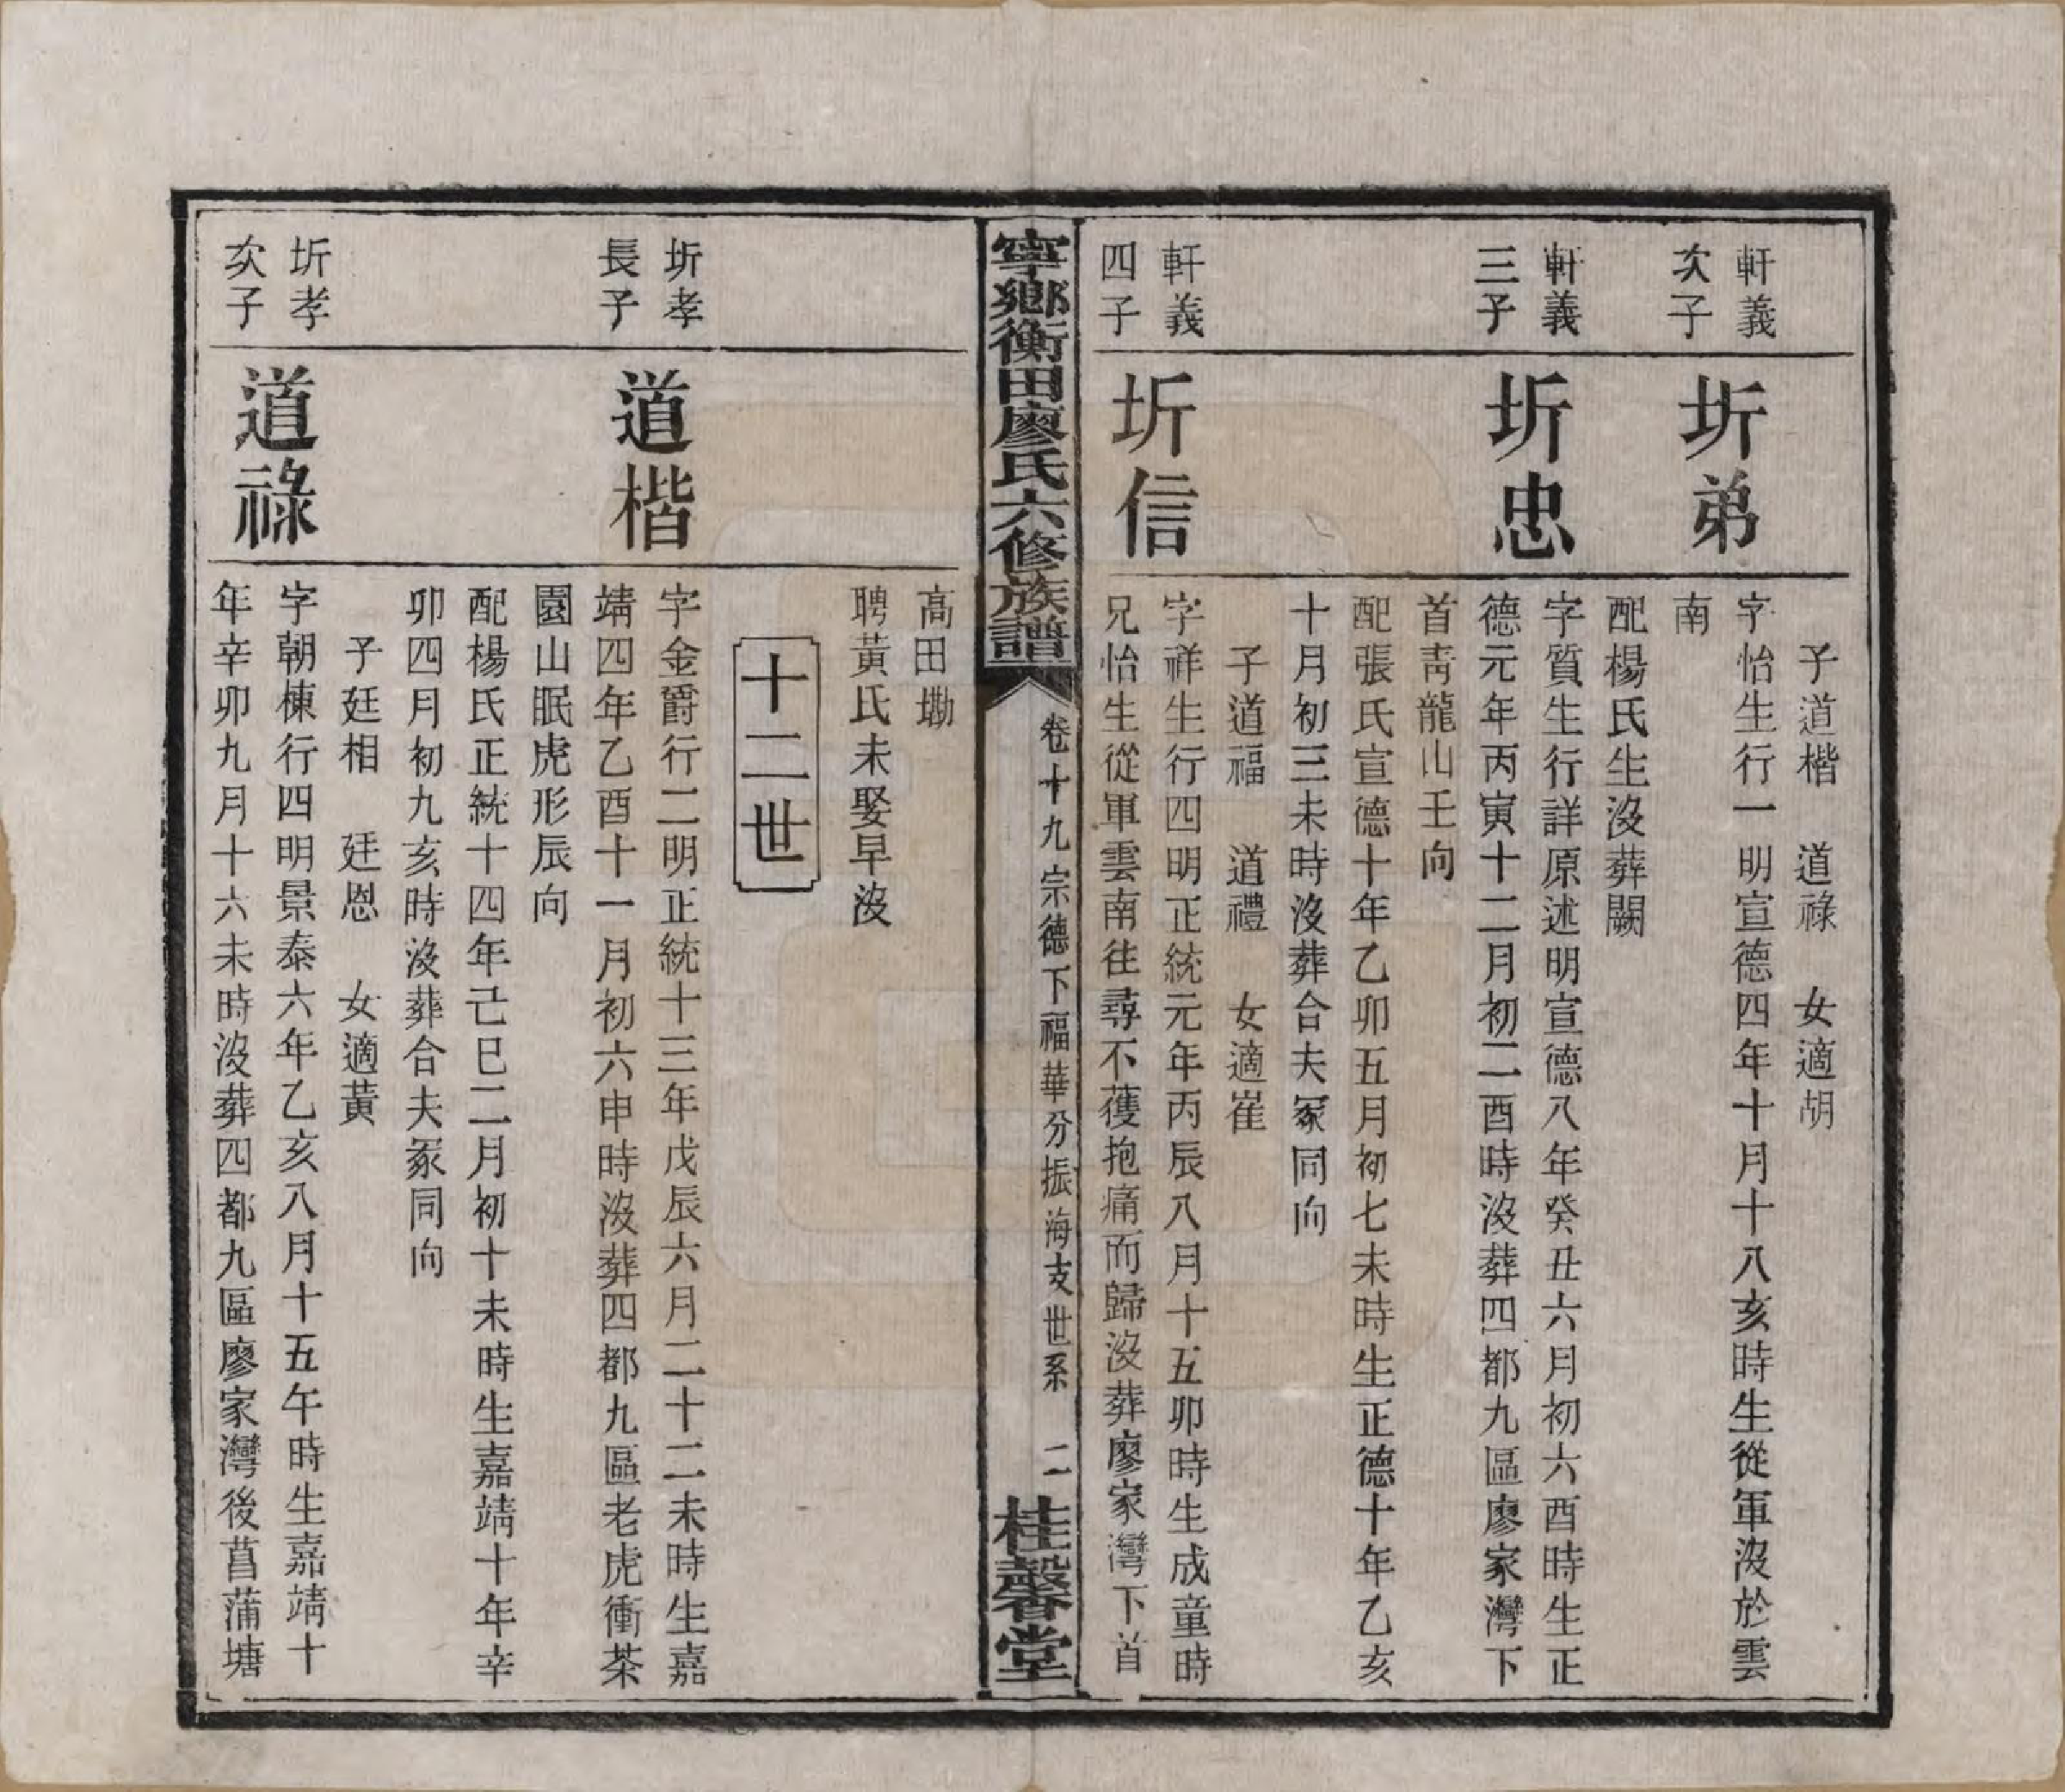 子道楷　道祿　女適胡
軒義
次子
圻弟
字怡生行一明宣德四年十月十八亥時生從軍沒於雲
南
配楊氏生沒葬闕
軒義
三子
圻忠
字質生行詳原述明宣德八年癸丑六月初六酉時生正
德元年丙寅十二月初二酉時沒葬四都九區廖家灣下
首青龍山壬向
配張氏宣德十年乙卯五月初七未時生正德十年乙亥
十月初三未時沒葬合夫冢同向
子道福　道禮　女適崔
軒義
四子
圻信
字祥生行四明正統元年丙辰八月十五卯時生成童時
兄怡生從軍雲南往尋不獲抱痛而歸沒葬廖家灣下首
寧鄉衡田廖氏六修族譜
卷十九宗德下福華分振海支世系　二
桂馨堂
高田墈
聘黃氏未娶早沒
十二世
圻孝
長子
道楷
字金爵行二明正統十三年戊辰六月二十二未時生嘉
靖四年乙酉十一月初六申時沒葬四都九區老虎衝茶
園山眠虎形辰向
配楊氏正統十四年己巳二月初十未時生嘉靖十年辛
卯四月初九亥時沒葬合夫冢同向
子廷相　廷恩　女適黃
圻孝
次子
道祿
字朝棟行四明景泰六年乙亥八月十五午時生嘉靖十
年辛卯九月十六未時沒葬四都九區廖家灣後菖蒲塘